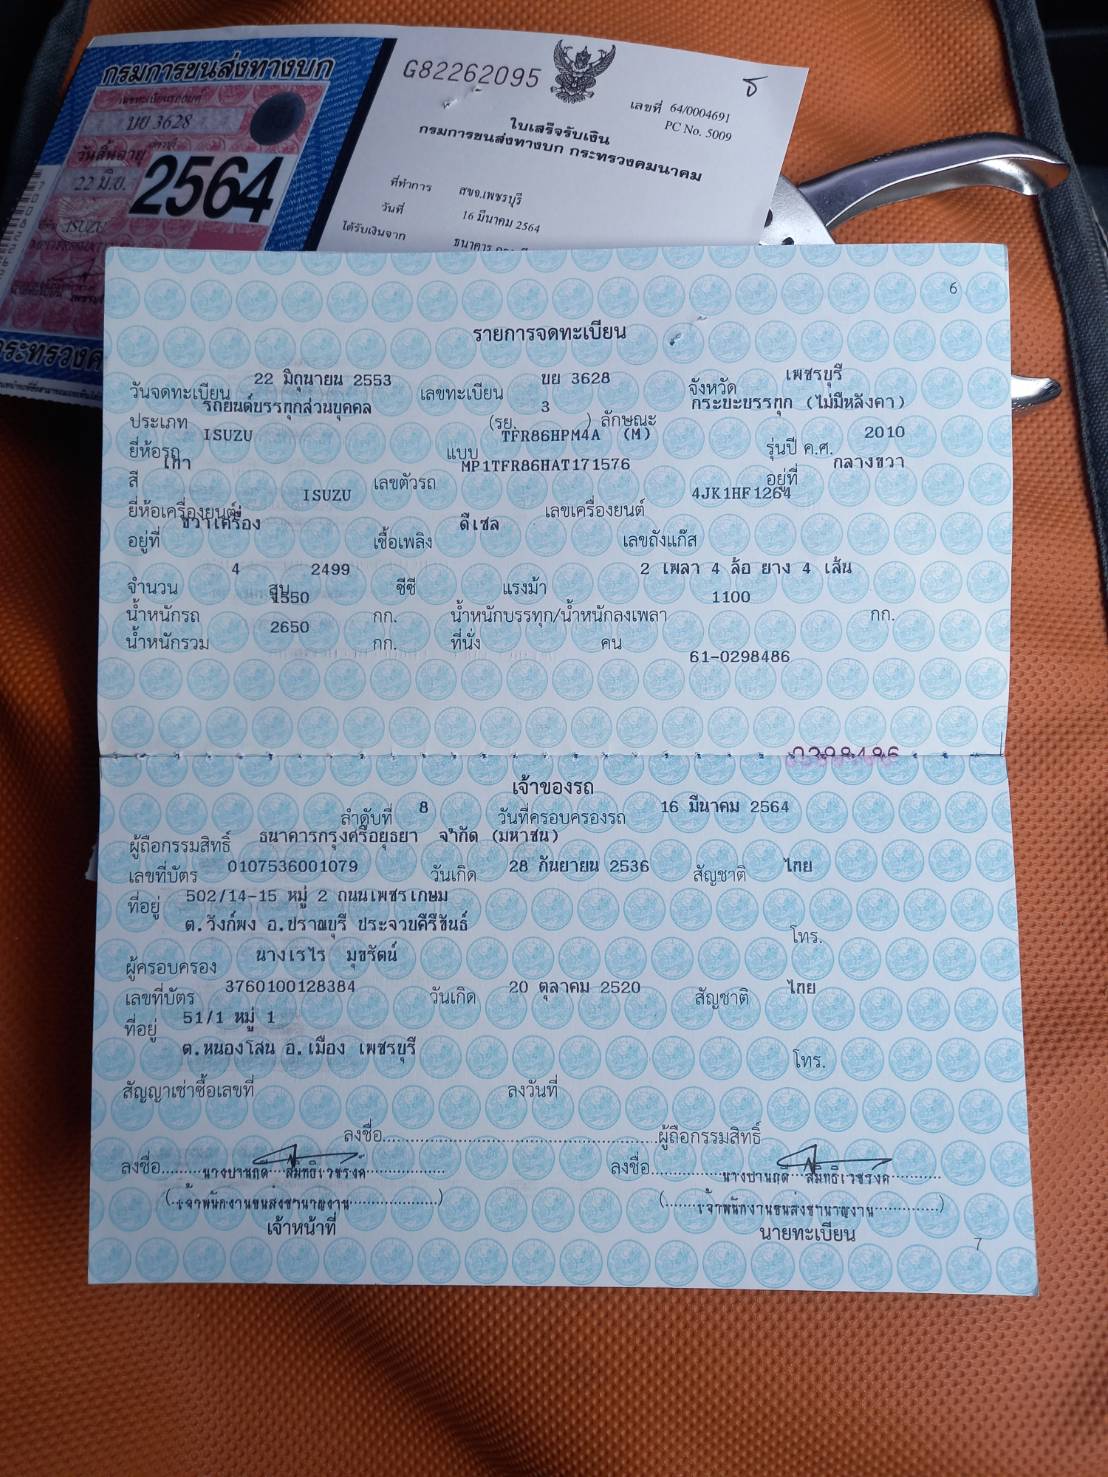 กรมการขนส่งทางบก
บย 3628
วันสิ้นอายุ
22 มิ.ย. 2564
ISUZU
G82262095
ธ
เลขที่ 64/0004691
PC No. 5009
ใบเสร็จรับเงิน
กรมการขนส่งทางบก กระทรวงคมนาคม
ที่ทำการ สขจ.เพชรบุรี
วันที่ 16 มีนาคม 2564
ได้รับเงินจาก ธนาคาร
6
รายการจดทะเบียน
วันจดทะเบียน 22 มิถุนายน 2553 เลขทะเบียน บย 3628 จังหวัด เพชรบุรี
ประเภท รถยนต์บรรทุกส่วนบุคคล (รย. 3 ) ลักษณะ กระบะบรรทุก (ไม่มีหลังคา)
ยี่ห้อรถ ISUZU แบบ TFR86HPM4A (M) รุ่นปี ค.ศ. 2010
สี เทา เลขตัวรถ MP1TFR86HAT171576 อยู่ที่ กลางขวา
ยี่ห้อเครื่องยนต์ ISUZU เลขเครื่องยนต์ 4JK1HF1264
อยู่ที่ ขวาเครื่อง เชื้อเพลิง ดีเซล เลขถังแก๊ส
จำนวน 4 สูบ 2499 ซีซี แรงม้า 2 เพลา 4 ล้อ ยาง 4 เส้น
น้ำหนักรถ 1550 กก. น้ำหนักบรรทุก/น้ำหนักลงเพลา 1100 กก.
น้ำหนักรวม 2650 กก. ที่นั่ง คน
61-0298486
เจ้าของรถ
ลำดับที่ 8 วันที่ครอบครองรถ 16 มีนาคม 2564
ผู้ถือกรรมสิทธิ์ ธนาคารกรุงศรีอยุธยา จำกัด (มหาชน)
เลขที่บัตร 0107536001079 วันเกิด 28 กันยายน 2536 สัญชาติ ไทย
ที่อยู่ 502/14-15 หมู่ 2 ถนนเพชรเกษม
ต.วังก์พง อ.ปราณบุรี ประจวบคีรีขันธ์ โทร.
ผู้ครอบครอง นางเรไร มุขรัตน์
เลขที่บัตร 3760100128384 วันเกิด 20 ตุลาคม 2520 สัญชาติ ไทย
ที่อยู่ 51/1 หมู่ 1
ต.หนองโสน อ.เมือง เพชรบุรี โทร.
สัญญาเช่าซื้อเลขที่ ลงวันที่
ลงชื่อ..........ผู้ถือกรรมสิทธิ์
ลงชื่อ..........ลงชื่อ..........
(เจ้าพนักงานขนส่งชำนาญงาน) (เจ้าพนักงานขนส่งชำนาญงาน)
เจ้าหน้าที่ นายทะเบียน
7